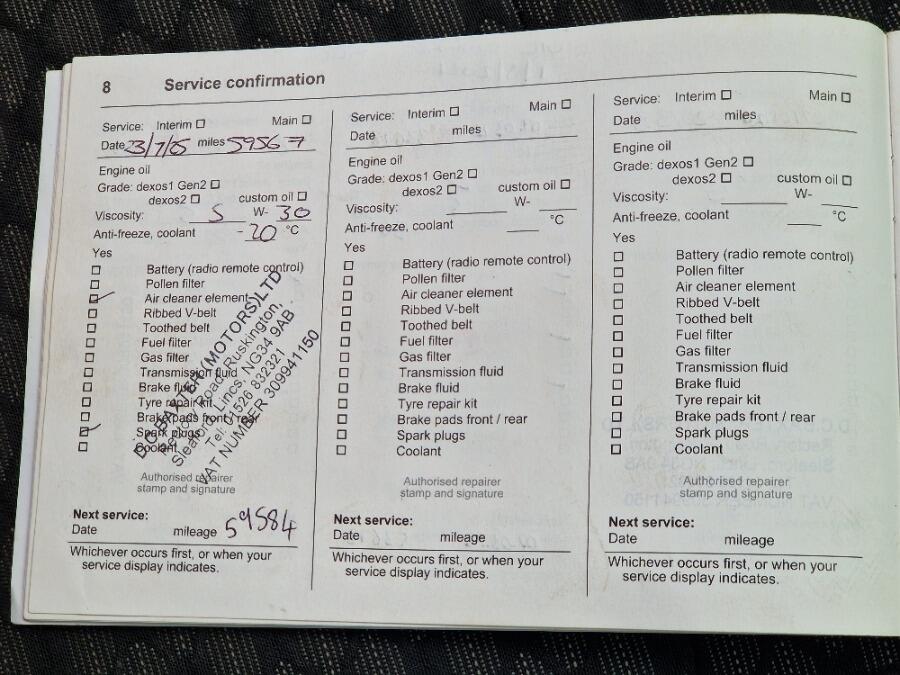 8 Service confirmation
Service: Interim ☐ Main ☐
Date 23/7/25 miles 59567
Engine oil
Grade: dexos1 Gen2 ☐
dexos2 ☐ custom oil ☐
Viscosity: 5 W- 30
Anti-freeze, coolant -20 °C
Yes
☐ Battery (radio remote control)
☐ Pollen filter
☑ Air cleaner element
☐ Ribbed V-belt
☐ Toothed belt
☐ Fuel filter
☐ Gas filter
☐ Transmission fluid
☐ Brake fluid
☐ Tyre repair kit
☐ Brake pads front / rear
☑ Spark plugs
☐ Coolant
D.C. BAXTER (MOTORS) LTD
Road, Ruskington,
Sleaford, Lincs, NG34 9AB
Tel: 01526 832321
VAT NUMBER 309941150
Authorised repairer
stamp and signature
Next service:
Date mileage 59584
Whichever occurs first, or when your
service display indicates.
Service: Interim ☐ Main ☐
Date miles
Engine oil
Grade: dexos1 Gen2 ☐
dexos2 ☐ custom oil ☐
Viscosity: W-
Anti-freeze, coolant °C
Yes
☐ Battery (radio remote control)
☐ Pollen filter
☐ Air cleaner element
☐ Ribbed V-belt
☐ Toothed belt
☐ Fuel filter
☐ Gas filter
☐ Transmission fluid
☐ Brake fluid
☐ Tyre repair kit
☐ Brake pads front / rear
☐ Spark plugs
☐ Coolant
Authorised repairer
stamp and signature
Next service:
Date mileage
Whichever occurs first, or when your
service display indicates.
Service: Interim ☐ Main ☐
Date miles
Engine oil
Grade: dexos1 Gen2 ☐
dexos2 ☐ custom oil ☐
Viscosity: W-
Anti-freeze, coolant °C
Yes
☐ Battery (radio remote control)
☐ Pollen filter
☐ Air cleaner element
☐ Ribbed V-belt
☐ Toothed belt
☐ Fuel filter
☐ Gas filter
☐ Transmission fluid
☐ Brake fluid
☐ Tyre repair kit
☐ Brake pads front / rear
☐ Spark plugs
☐ Coolant
Authorised repairer
stamp and signature
Next service:
Date mileage
Whichever occurs first, or when your
service display indicates.